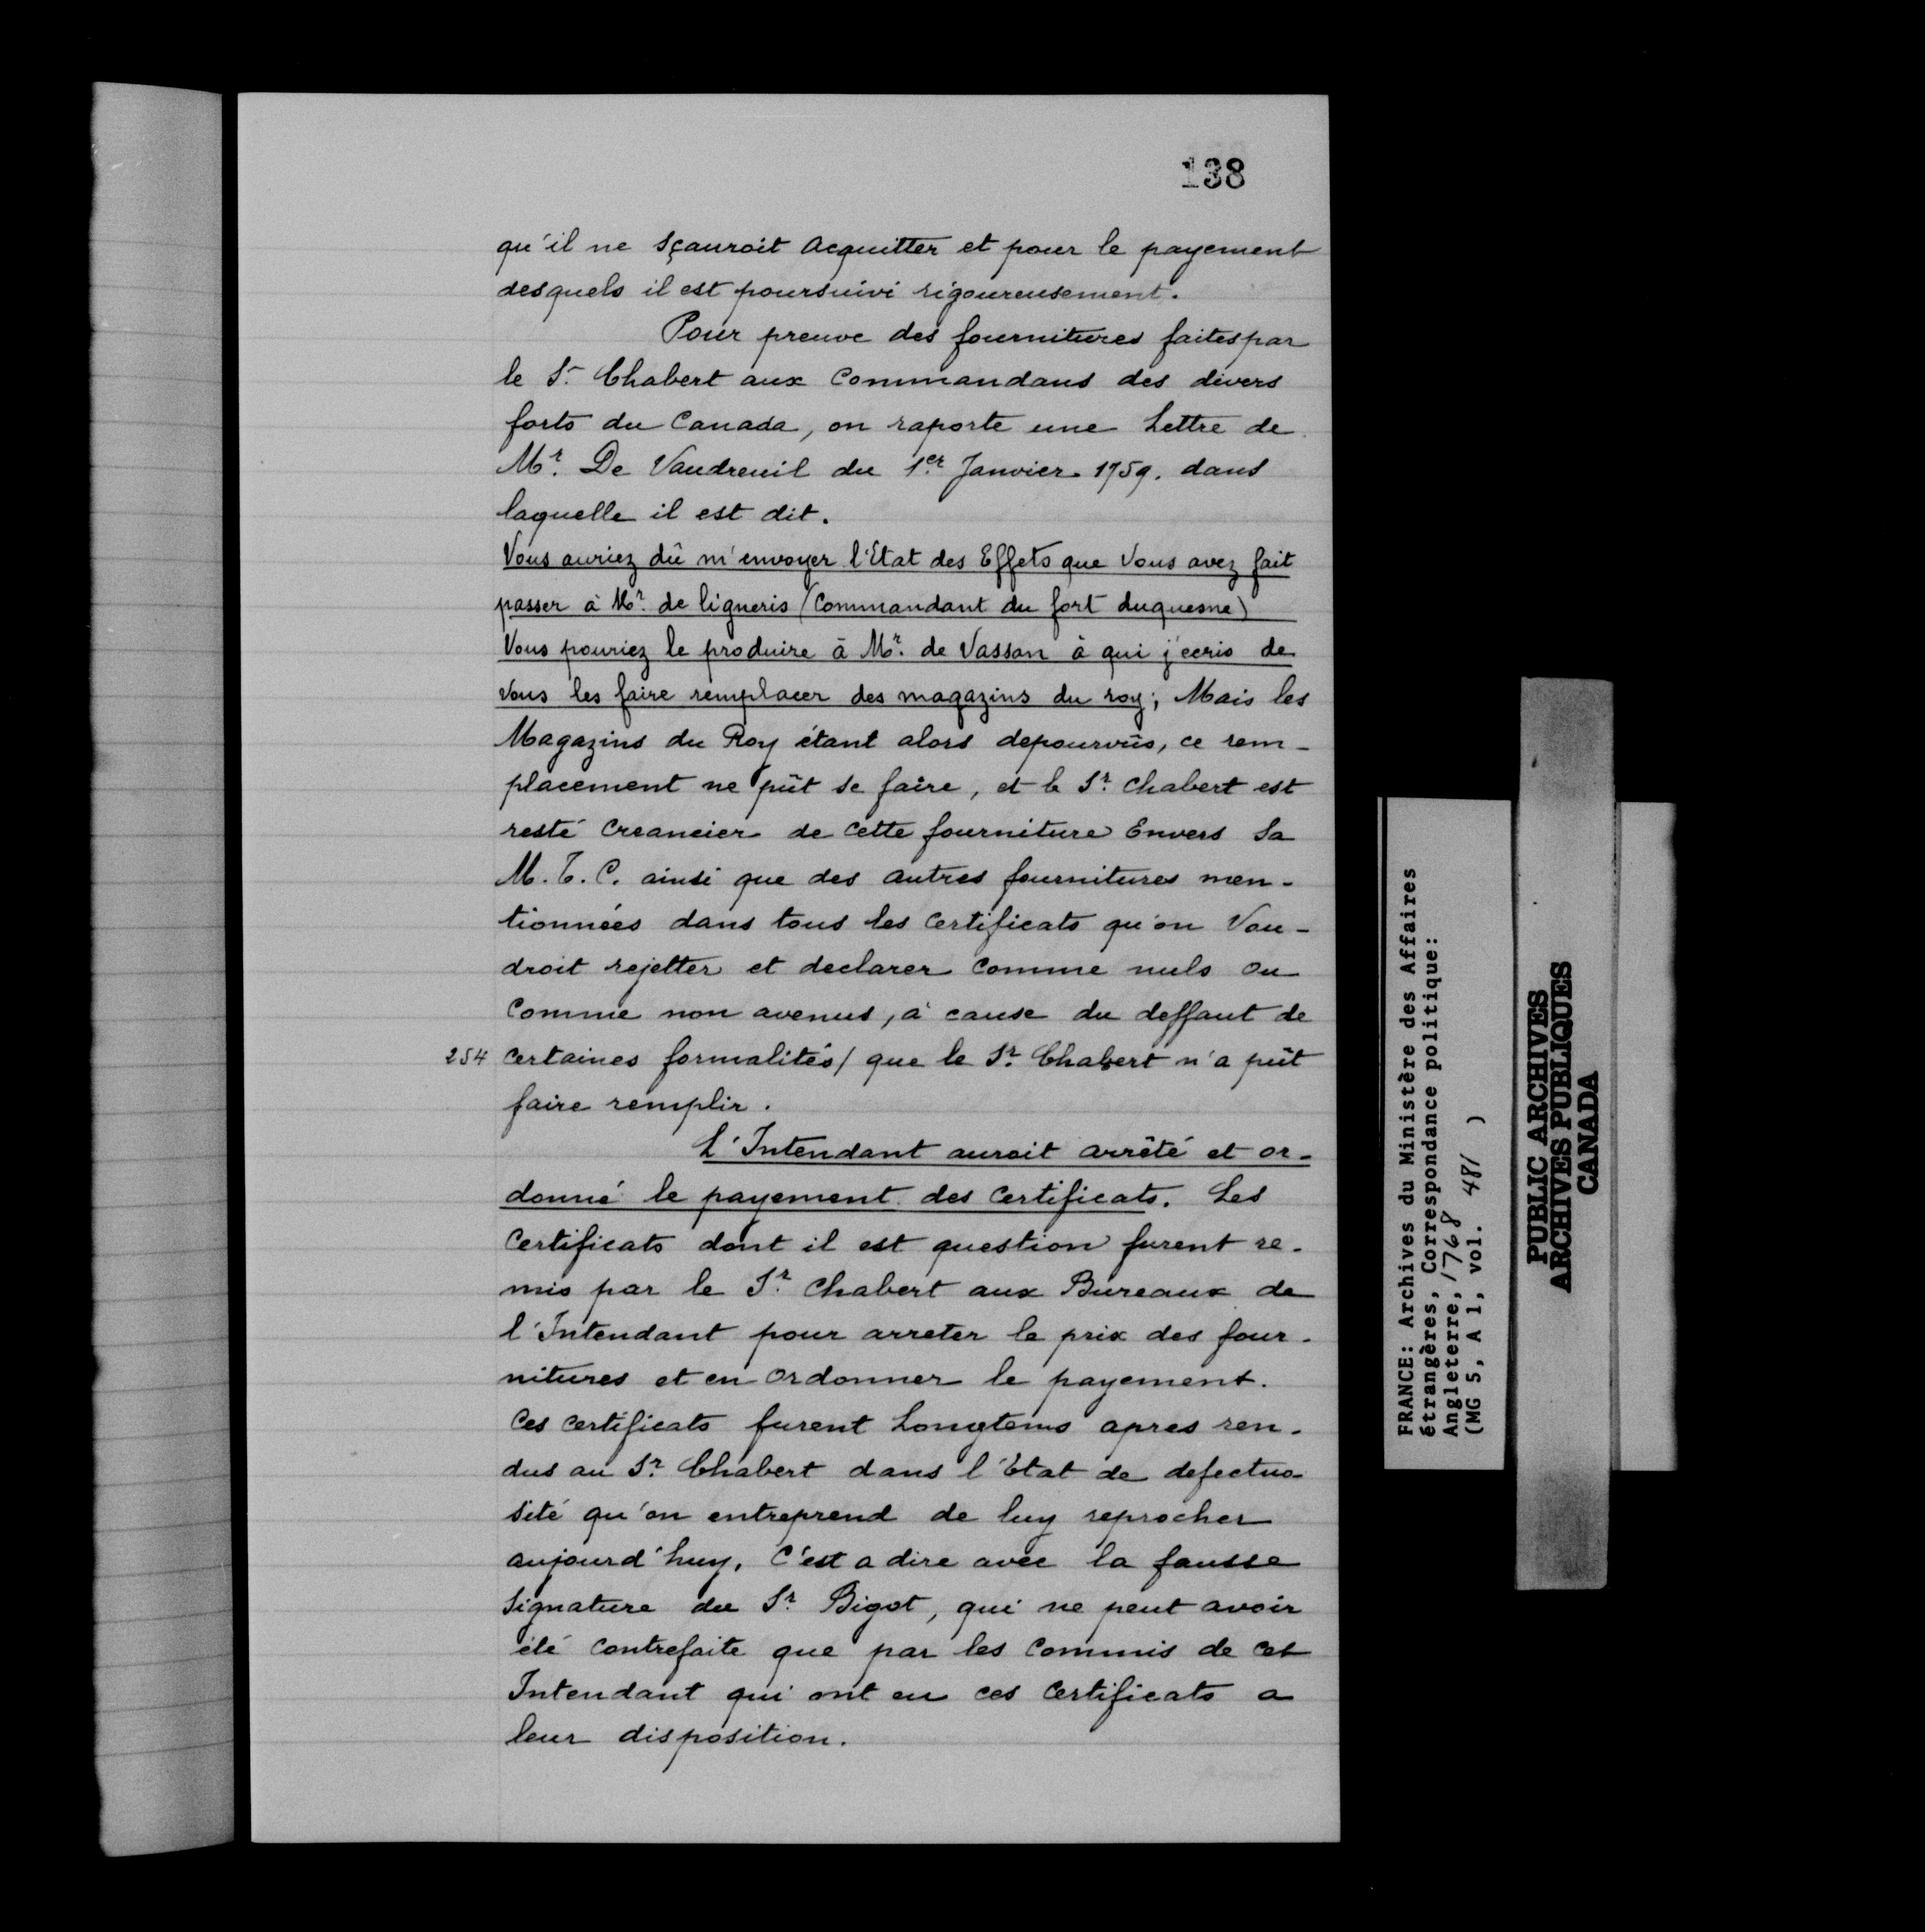 138
qu'il ne sçauroit acquitter et pour le payement
desquels il est poursuivi rigoureusement.
Pour preuve des fournitures faites par
le Sr. Chabert aux Commandans des divers
forts du Canada, on raporte une Lettre de
Mr. De Vaudreuil du 1er. Janvier 1759. dans
laquelle il est dit.
Vous auriez dû m'envoyer l'Etat des Effets que Vous avez fait
passer à Mr. de ligneris (Commandant du fort duquesne)
Vous pouriez le produire à Mr. de Vassan à qui j'ecris de
vous les faire remplacer des magazins du roy; Mais les
Magazins du Roy étant alors depourvûs, ce rem-
placement ne pût se faire, et le Sr. Chabert est
resté Creancier de cette fourniture Envers Sa
M. T. C. ainsi que des autres fournitures men-
tionnées dans tous les Certificats qu'on Vou-
droit rejetter et declarer comme nuls ou
comme non avenus, à cause du deffaut de
254 certaines formalités/ que le Sr. Chabert n'a pût
faire remplir.
L'Intendant auroit arrêté et or-
donné le payement des Certificats. Les
Certificats dont il est question furent re-
mis par le Sr. Chabert aux Bureaux de
l'Intendant pour arreter le prix des four-
nitures et en Ordonner le payement.
Ces certificats furent Longtems apres ren-
dus au Sr. Chabert dans l'Etat de defectuo-
sité qu'on entreprend de luy reprocher
aujourd'huy, C'est a dire avec la fausse
Signature du Sr. Bigot, qui ne peut avoir
été contrefaite que par les Commis de cet
Intendant qui ont eu ces Certificats a
leur disposition.
FRANCE: Archives du Ministère des Affaires
étrangères, Correspondance politique:
Angleterre, 1768
(MG 5, A 1, vol. 481 )
PUBLIC ARCHIVES
ARCHIVES PUBLIQUES
CANADA